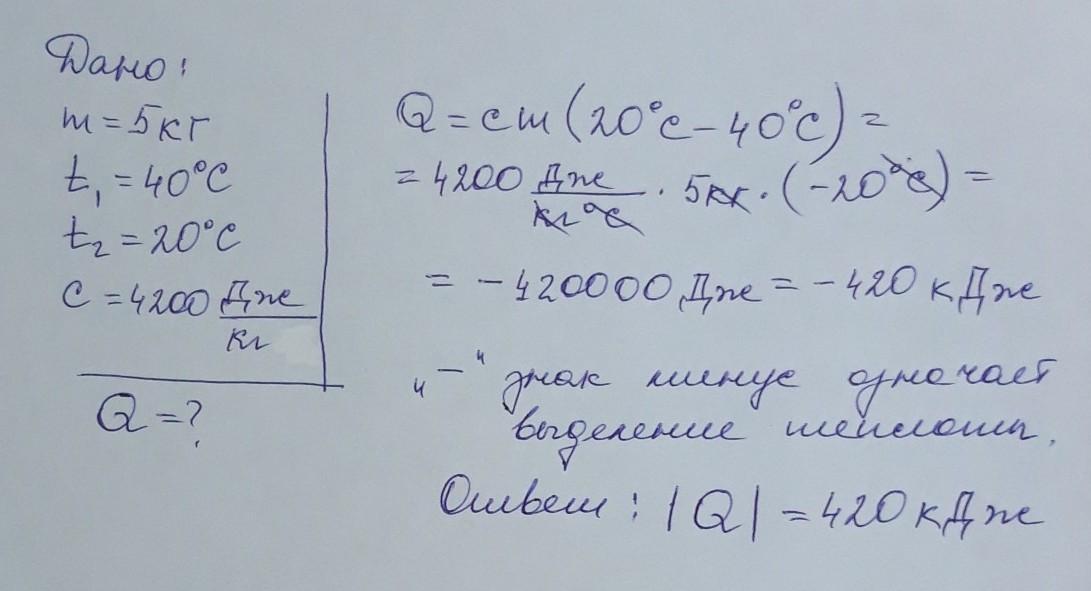 Дано:
m = 5кг
t₁ = 40°C
t₂ = 20°C
c = 4200 Дже/кг
Q = ?
Q = cm (20°c - 40°C) =
= 4200 Дже/кг°c · 5кг · (-20°c) =
= - 420000 Дже = - 420 кДже
„ — " знак минус означает
выделение теплоты.
Ответ: |Q| = 420 кДже